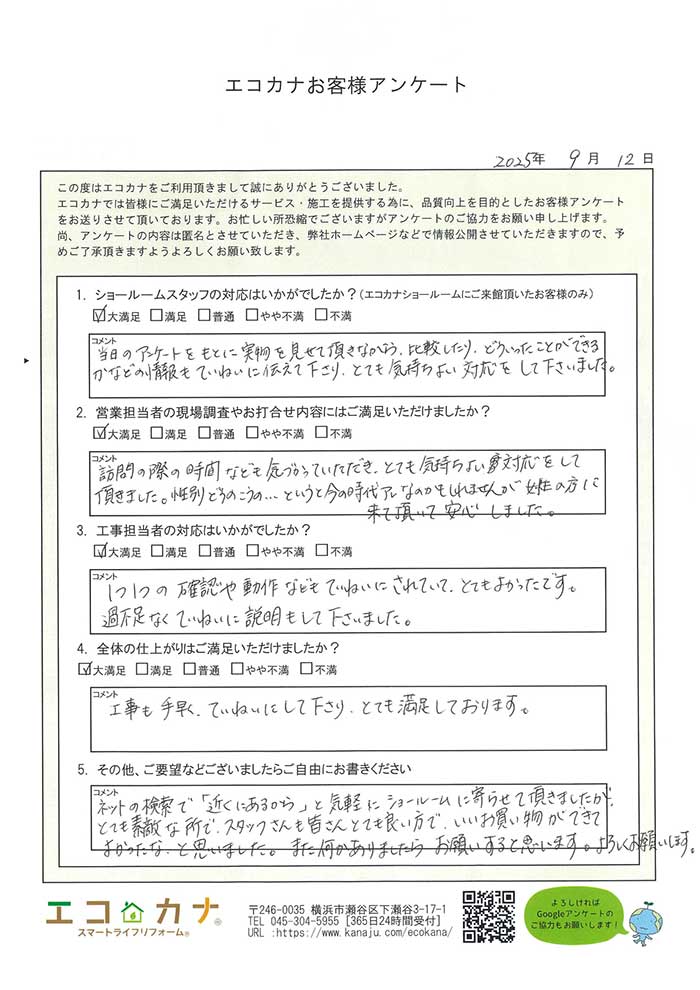 エコカナお客様アンケート
2025年 9月 12日
この度はエコカナをご利用頂きまして誠にありがとうございました。
エコカナでは皆様にご満足いただけるサービス・施工を提供する為に、品質向上を目的としたお客様アンケート
をお送りさせて頂いております。お忙しい所恐縮でございますがアンケートのご協力をお願い申し上げます。
尚、アンケートの内容は匿名とさせていただき、弊社ホームページなどで情報公開させていただきますので、予
めご了承頂きますようよろしくお願い致します。
1. ショールームスタッフの対応はいかがでしたか？(エコカナショールームにご来館頂いたお客様のみ)
☑大満足 □満足 □普通 □やや不満 □不満
コメント
当日のアンケートをもとに実物を見せて頂きながら、比較したり、どういったことができる
かなどの情報もていねいに伝えて下さり、とても気持ちよい対応をして下さいました。
2. 営業担当者の現場調査やお打合せ内容にはご満足いただけましたか？
☑大満足 □満足 □普通 □やや不満 □不満
コメント
訪問の際の時間なども気づかっていただき、とても気持ちよい対応をして
頂きました。性別どうのこうの…というと今の時代アレなのかもしれませんが女性の方に
来て頂いて安心しました。
3. 工事担当者の対応はいかがでしたか？
☑大満足 □満足 □普通 □やや不満 □不満
コメント
1つ1つの確認や動作などもていねいにされていて、とてもよかったです。
過不足なくていねいに説明もして下さいました。
4. 全体の仕上がりはご満足いただけましたか？
☑大満足 □満足 □普通 □やや不満 □不満
コメント
工事も手早く、ていねいにして下さり、とても満足しております。
5. その他、ご要望などございましたらご自由にお書きください
コメント
ネットの検索で「近くにあるから」と気軽にショールームに寄らせて頂きましたが、
とても素敵な所で、スタッフさんも皆さんとても良い方で、いいお買い物ができて
よかったな、と思いました。また何かありましたらお願いすると思います。よろしくお願いします。
エコカナ
スマートライフリフォーム®
〒246-0035 横浜市瀬谷区下瀬谷3-17-1
TEL 045-304-5955 [365日24時間受付]
URL :https://www.kanaju.com/ecokana/
よろしければ
Googleアンケートの
ご協力もお願いします！